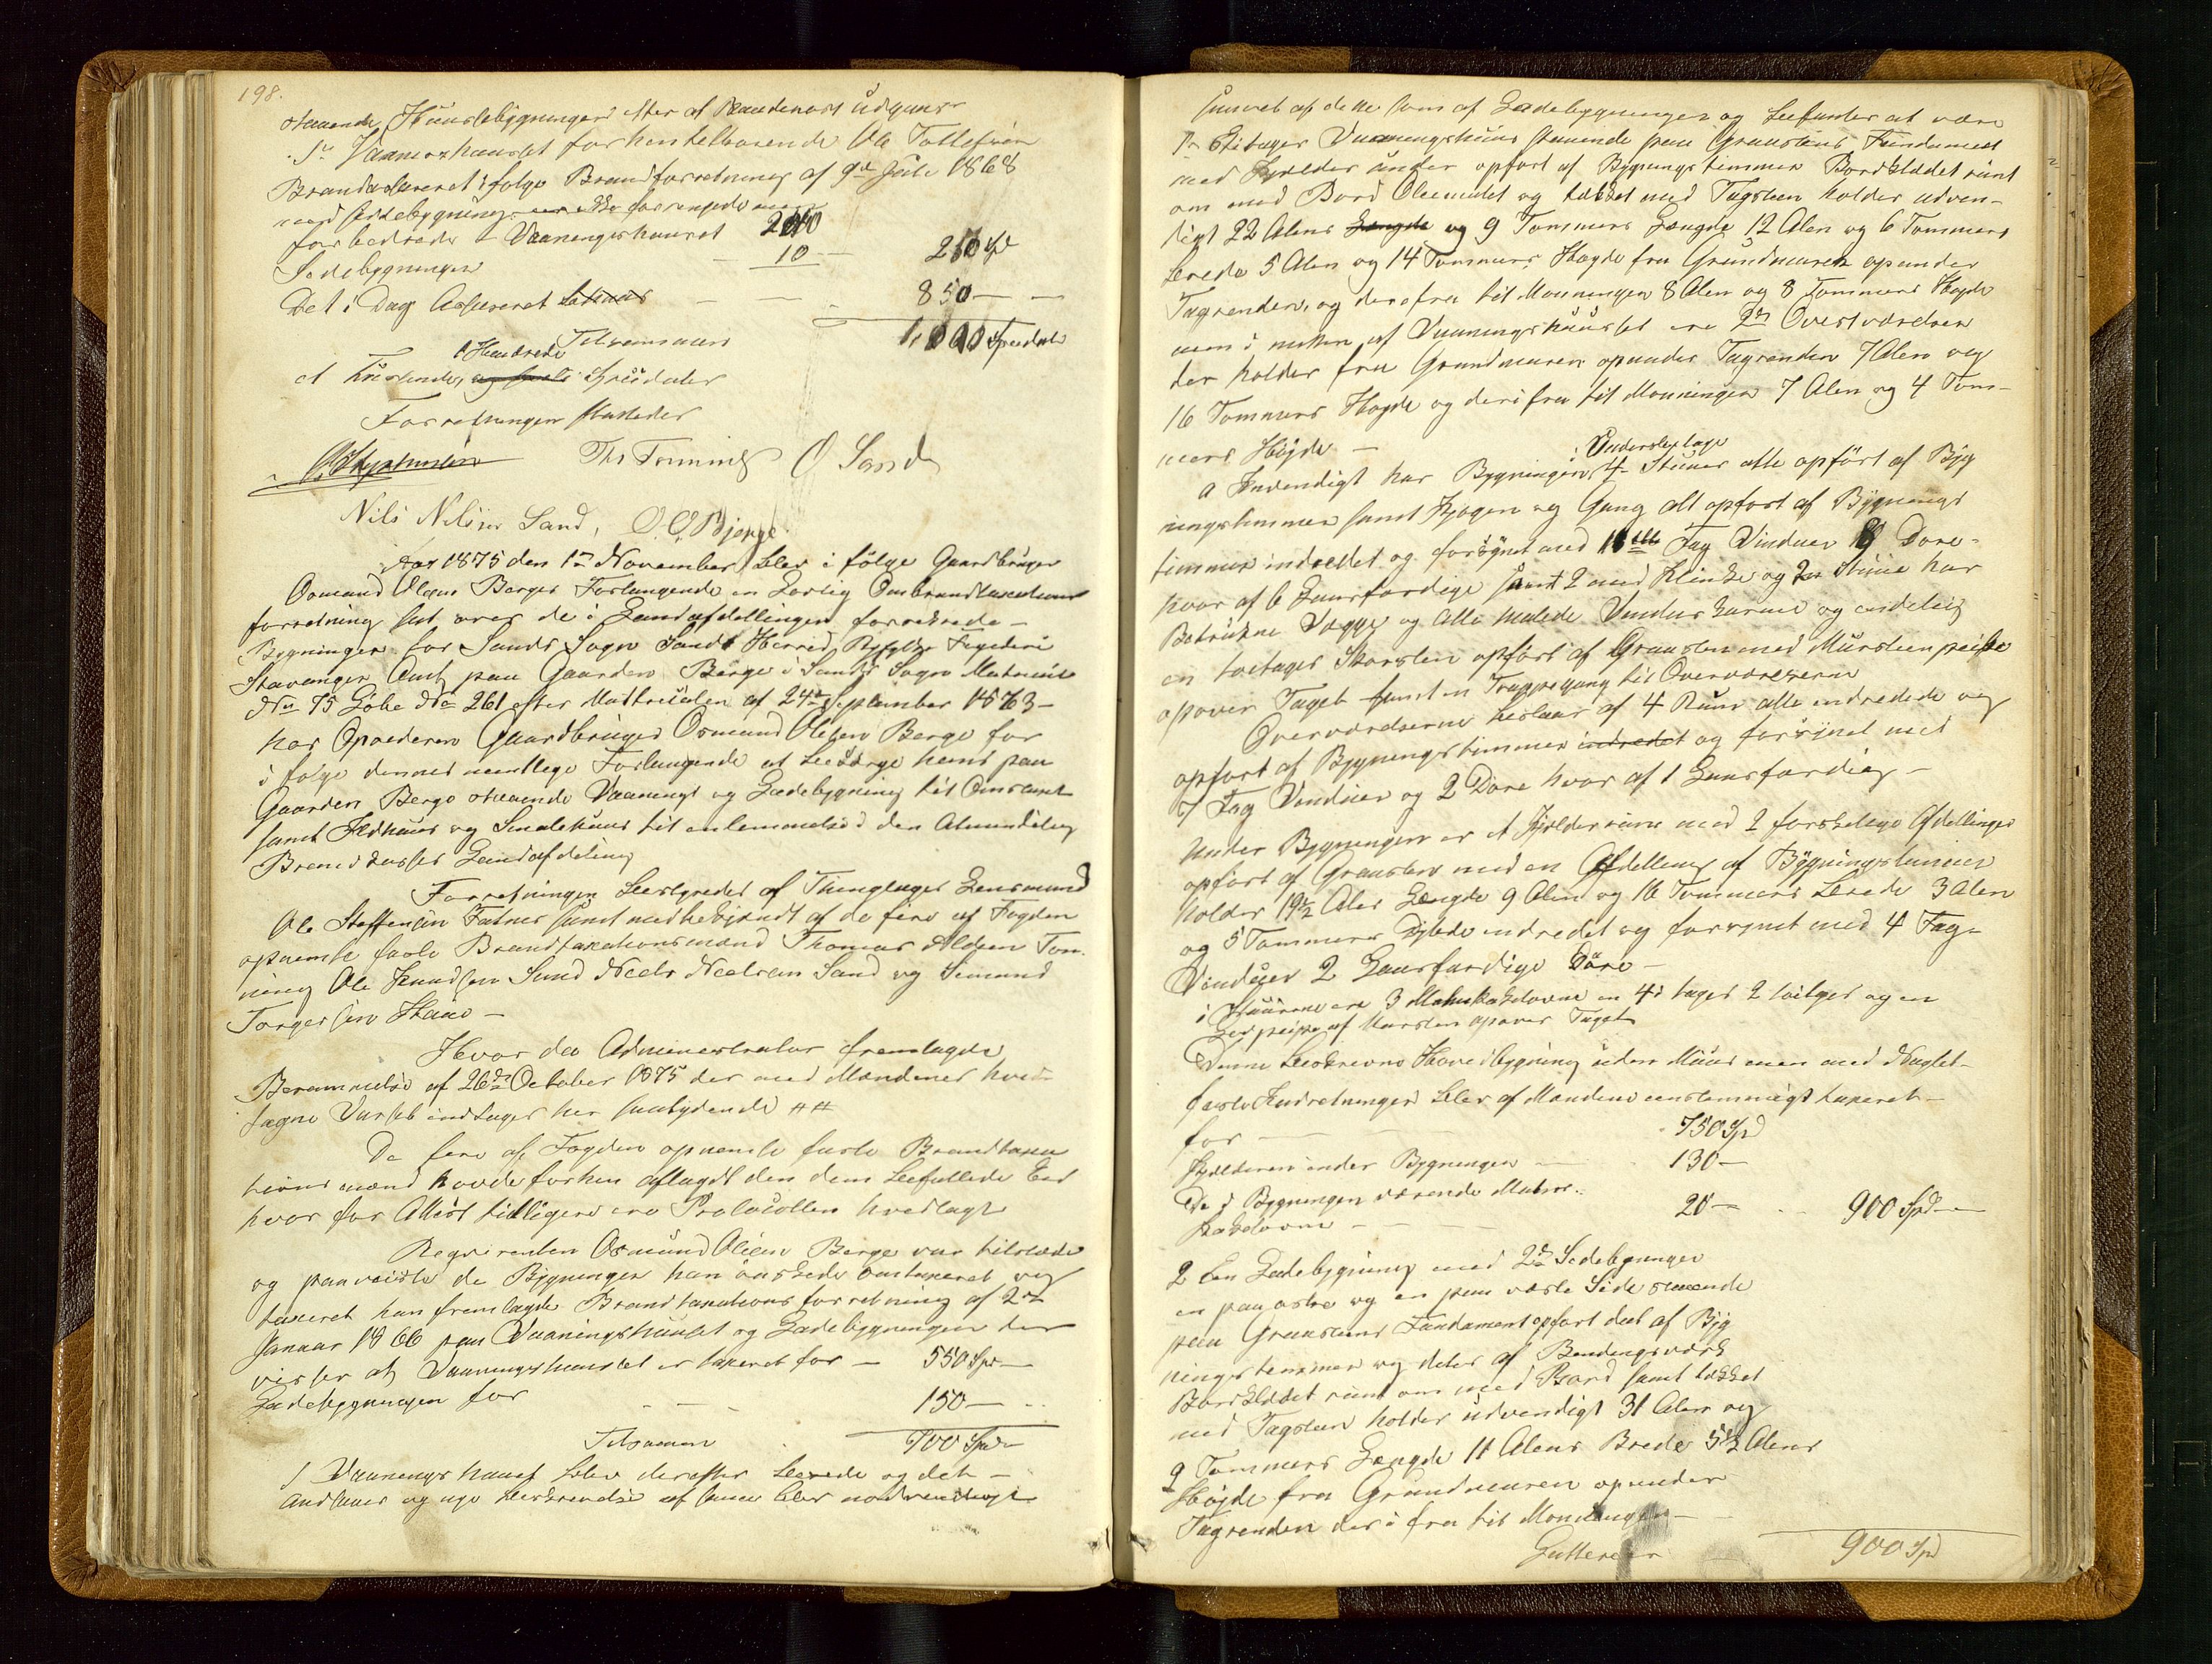 198.
staaende Huusebygninger efter at Branden
1ste Vaaningshuuset forhen tilhørende Ole Tollefsen
Brandassureret ifølge Brandforretning af 9de Juli 1868
forbedrede Vaaningshuuset 240
Ladebygningen 10 — 250 Sp
Det i Dag Assureret — — 850 — —
Tilsammen 1,100 Speciedaler
et Tusende et Hundrede Speciedaler
Forretningen sluttedes
Ths Tonning O Sand
Nils Nilsen Sand, O. O. Bjerge
Aar 1875 den 1ste November blev i følge Gaardbruger
Osmund Olsens Berges Forlangende en Lovlig Ombrandtaxations
forretning sat over de i Landafdellingen forsikrede
Bygninger for Sands Sogn Sands Herred Ryfylke Fogderi
Stavanger Amt paa Gaarden Berge i Sands Sogn Matricul
No 75 Löbe No 261 efter Matriculen af 24de September 1863 —
har Opsidderen Gaardbruger Osmund Olsen Berge for
i følge dennes mundtlige Forlangende at besørge hans paa
Gaarden Berge staaende Vaanings og Ladebygning til Omtaxt
samt Ildhuus og Smalehuus til indlemmelse i den Almindelig
Brandkasses Landafdeling
Forretningen bestyredes af Thinglaget Lensmand
Ole Steffensen Fatnes samt medbetjendt af de fire af Fogden
opnevnte faste Brandtaxationsmænd Thomas Olsen Ton-
ning Ole Knudsen Sand Neels Neelsen Sand og Simund
Torgersen Haae —
Hvor da Administrator fremlagde
Berammelse af 26de October 1875 der med Mændenes hved
fægne Varsel indtages her saalydende ##
De fire af Fogden opnevnte faste Brandtaxa
tionsmænd havde forhen aflagdt den dem befallede Eed
hvor for Attest tidligere ere Protocollen hvedlagt
Reqvirenten Osmund Olsen Berge var tilstæde
og paaviiste de Bygninger han ønskede omtaxeret og
taxeret han fremlagde Brandtaxations forretning af 2den
Januar 1866 paa Vaaningshuuset og Ladebygningen der
viser at Vaaningshuuset er taxeret for — 550 Spd —
Ladebygningen for — — 150 — ..
Tilsammen 700 Spd —
1 Vaaningshuuset blev derefter besede og det —
andsees og nye beskrivelse af samme blev nødvendigt
samvel af dette som af Ladebygningen og befantes at være
1ste Etages Vaaningshuus staaende paa Graasteens Fundament
med Kjelder under opført af Bygningstimmer Bordklædet runt
om med Bord Oliemalet og tækket med Tagsteen holder udven-
digt 22 Alens Længde og 9 Tommers Længde 12 Alen og 6 Tommers
brede 5 Alen og 14 Tommers Høgde fra Grundmuren opunder
Tagrenden, og derefra til Mønningen 8 Alen og 8 Tommers Høgde
men i midten af Vaaningshuuset ere 2de Overstværelser
der holder fra Grundmuren opunder Tagrenden 7 Alen og
16 Tommers Høgde og derifra til Mønningen 7 Alen og 4 Tom-
mers Höjde —
a Indvendigt har Bygningen i Understetage 4 Stuer alle opført af Byg
ningstimmer samt Kjøgen og Gang alt opført af Bygnings
timmer indredet og forsynet med 11 Fag Vinduer 8 Döre
hvor af 6 Laasfærdige samt 2 med Klinke og Stuue har
Betrukne Vægge og Alle malede Vindus karme og endelig
en toetages Skorsten opført af Graasten med Mursteenspeibe
opover Taget samt en Trappegang til Overværeserne
Overværelserne bestaar af 4 Rum alle indredede og
opført af Bygningstimmer indredet og forsynet med
7 Fag Vinduer og 2 Döre hvor af 1 Laasfærdig —
under Bygningen er et Kjelderrum med 2 forskellige Afdellinger
opført af Graasten med en Afdelling af Bygningstimmer
holder 19½ Alen Længde 9 Alen og 16 Tommers brede 3 Alen
og 5 Tommers Dybde indredet og forsynet med 4 Fag
Vinduer 2 Laasfærdige Döre —
i Stuerne ere 3 Malmkakelovne en 4re tages 2 toetages og en
Ledpeipe af Mursten opover Taget
Denne beskrevne Hovedbygning uden Muur men med Naglet-
faste Indretninger blev af Mændene eenstemmigt taxeret —
for — 750 Sp
Kjelderen under Bygningen — 130 —
De i Bygningen værende Malm-
kakelovne — — — 20 — . . 900 Spd —
2 Een Ladebygning med 2de Sidebygninger
en paa østre og en paa væstre Side staaende
paa Graasteens Fundament opført deel af Byg
ningstimmer og deels af Bendingsværk
Bordklædet rundt om med Bord samt tækket
med Tagsteen holder udvendigt 31 Alen og
9 Tommers Længde 11 Alens Brede 5½ Alens
Höjde fra Grundmuren opunder
Tagrenden derifra til Mønningen —
900 Sp